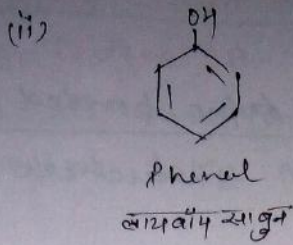 (ii)
OH
Phenol
लायबॉय साबुन